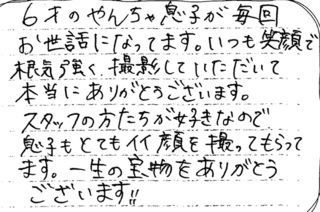 6才のやんちゃ息子が毎回
お世話になってます。いつも笑顔で
根気強く撮影していただいて
本当にありがとうございます。
スタッフの方たちが好きなので
息子もとてもイイ顔を撮ってもらって
ます。一生の宝物をありがとう
ございます!!